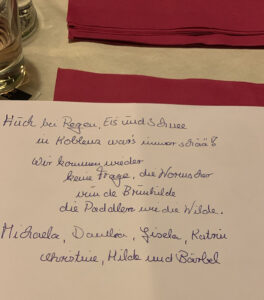 Auch bei Regen, Eis und Schnee
in Koblenz war's immer schää!
Wir kommen wieder
keine Frage, die Wormser
vun de Brunhilde
die Paddeln wie die Wilde.
Michaela, Daniela, Gisela, Katrin
Christine, Hilde und Bärbel